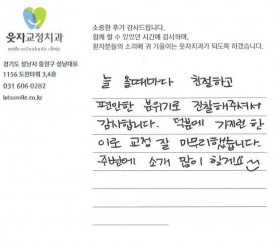 웃자교정치과
smile orthodontic clinic
경기도 성남시 중원구 성남대로
1156 도원타워 3,4층
031 606 0282
letssmile.co.kr
소중한 후기 감사드립니다.
함께 할 수 있었던 시간에 감사하며,
환자분들의 소리에 귀 기울이는 웃자치과가 되도록 하겠습니다.
늘 올때마다 친절하고
편안한 분위기로 진찰해주셔서
감사합니다. 덕분에 가지런한
이로 교정 잘 마무리했습니다.
주변에 소개 많이 할게요